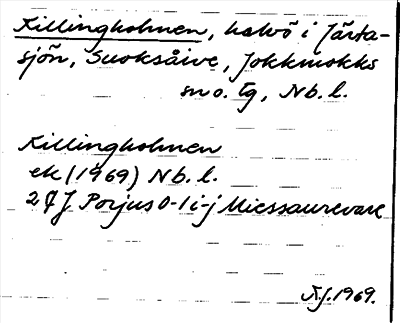 Killingholmen, halvö i Järta-
sjön, Suoksåive, Jokkmokks
sn o. tg, Nb. l.
Killingholmen
ek (1969) Nb. l.
27J Porjus 0-1 i-j Miessaurevare
1969.